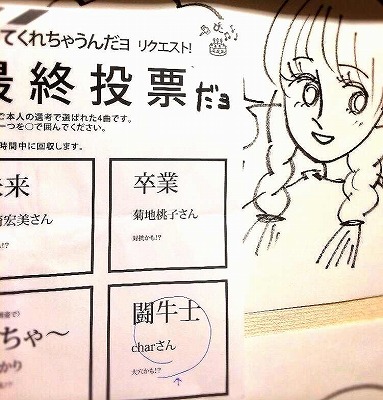 てくれちゃうんだヨ リクエスト!
最終投票だョ
ご本人の選考で選ばれた4曲です。
一つを○で囲んでください。
時間中に回収します。
未来
崎宏美さん
卒業
菊地桃子さん
対抗かも!?
ちゃ~
かり
闘牛士
charさん
大穴かも!?